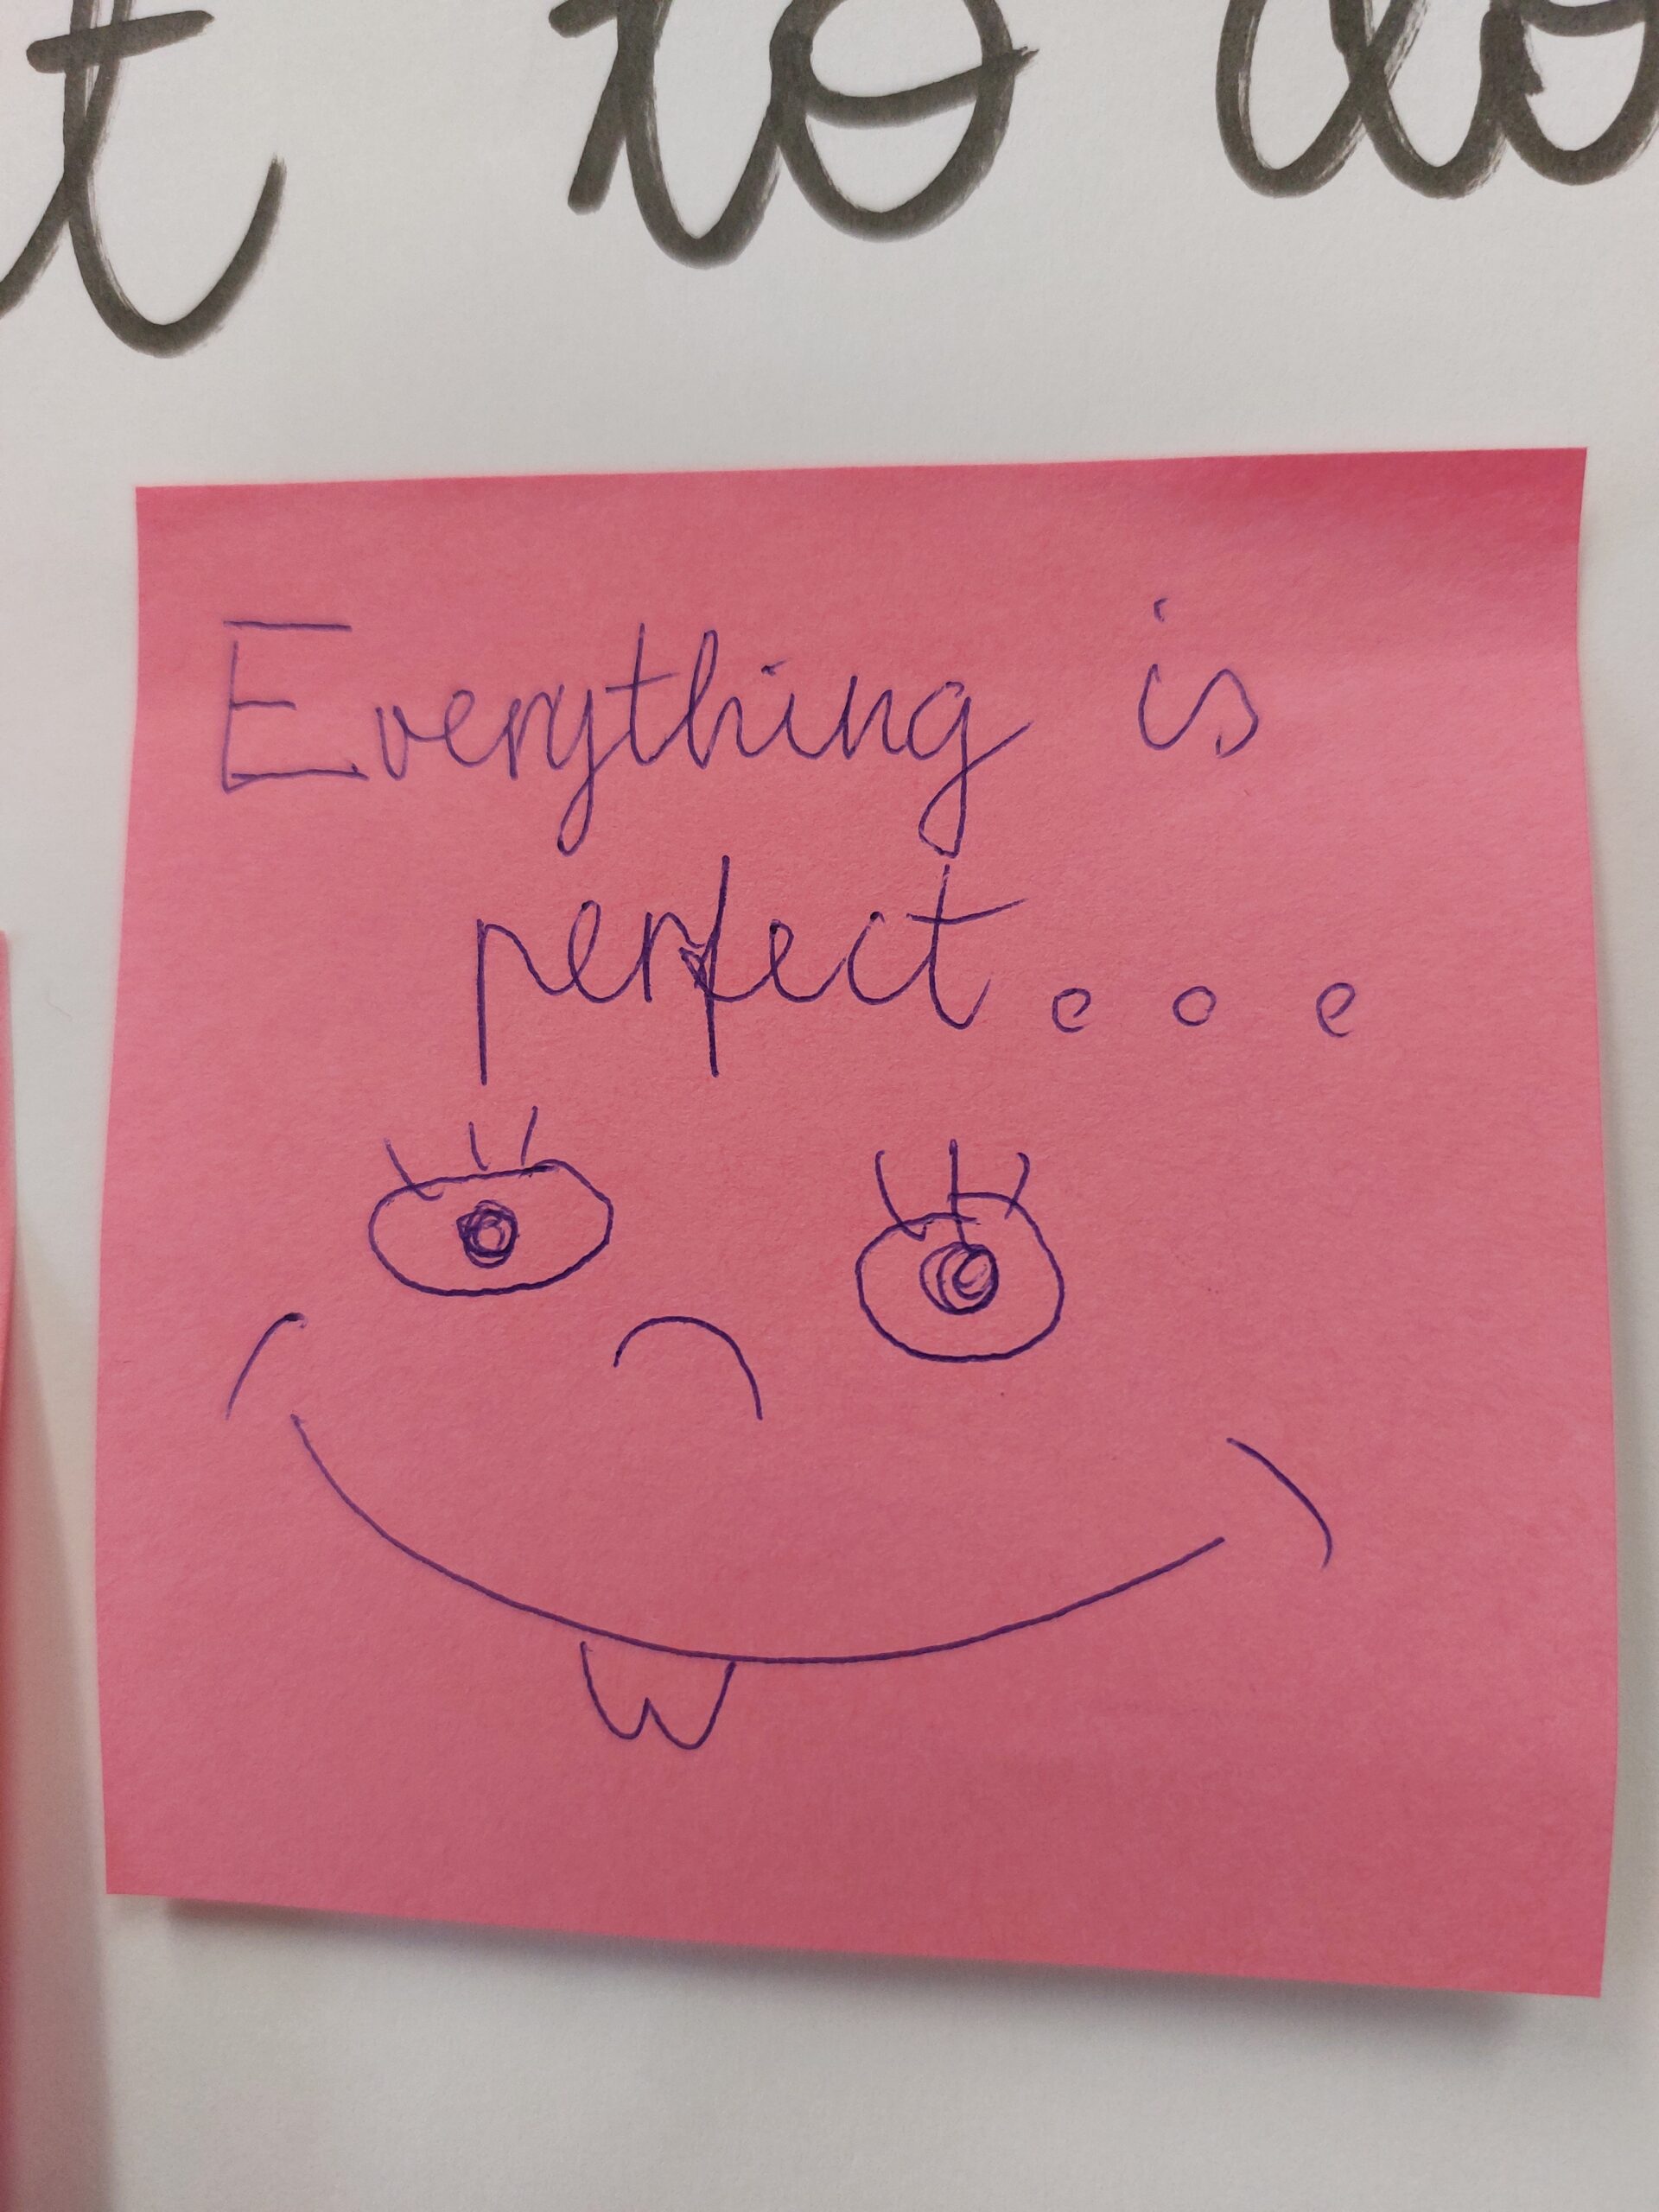 t to do
Everything is
perfect...